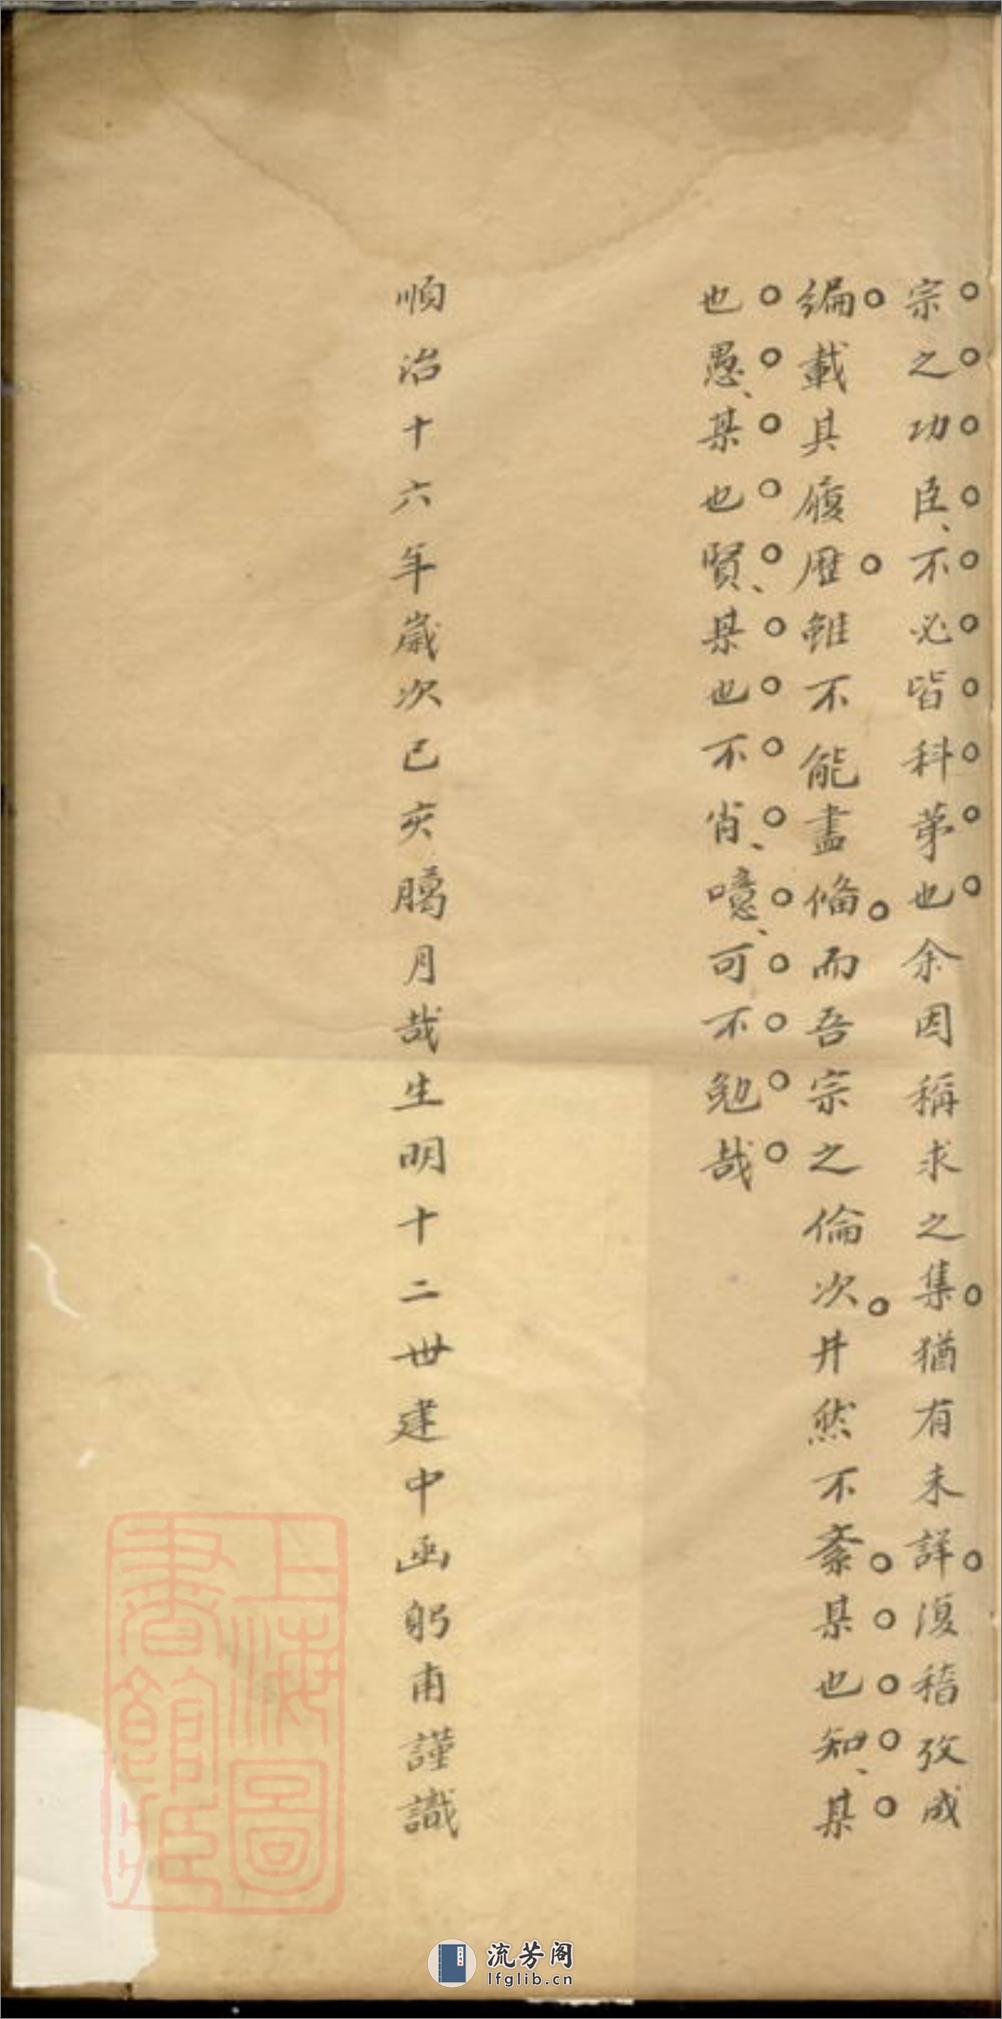 宗之功臣、不必皆科苐也余因稱求之集猶有未詳復稽攷成
編載其履歷雖不能盡俻而吾宗之倫次井然不紊某也知、某
也愚、某也賢、某也不肖、噫、可不勉哉
順治十六年歲次己亥臈月哉生明十二世建中函躬甫謹識
上海圖書館藏
流芳阁
lfglib.cn